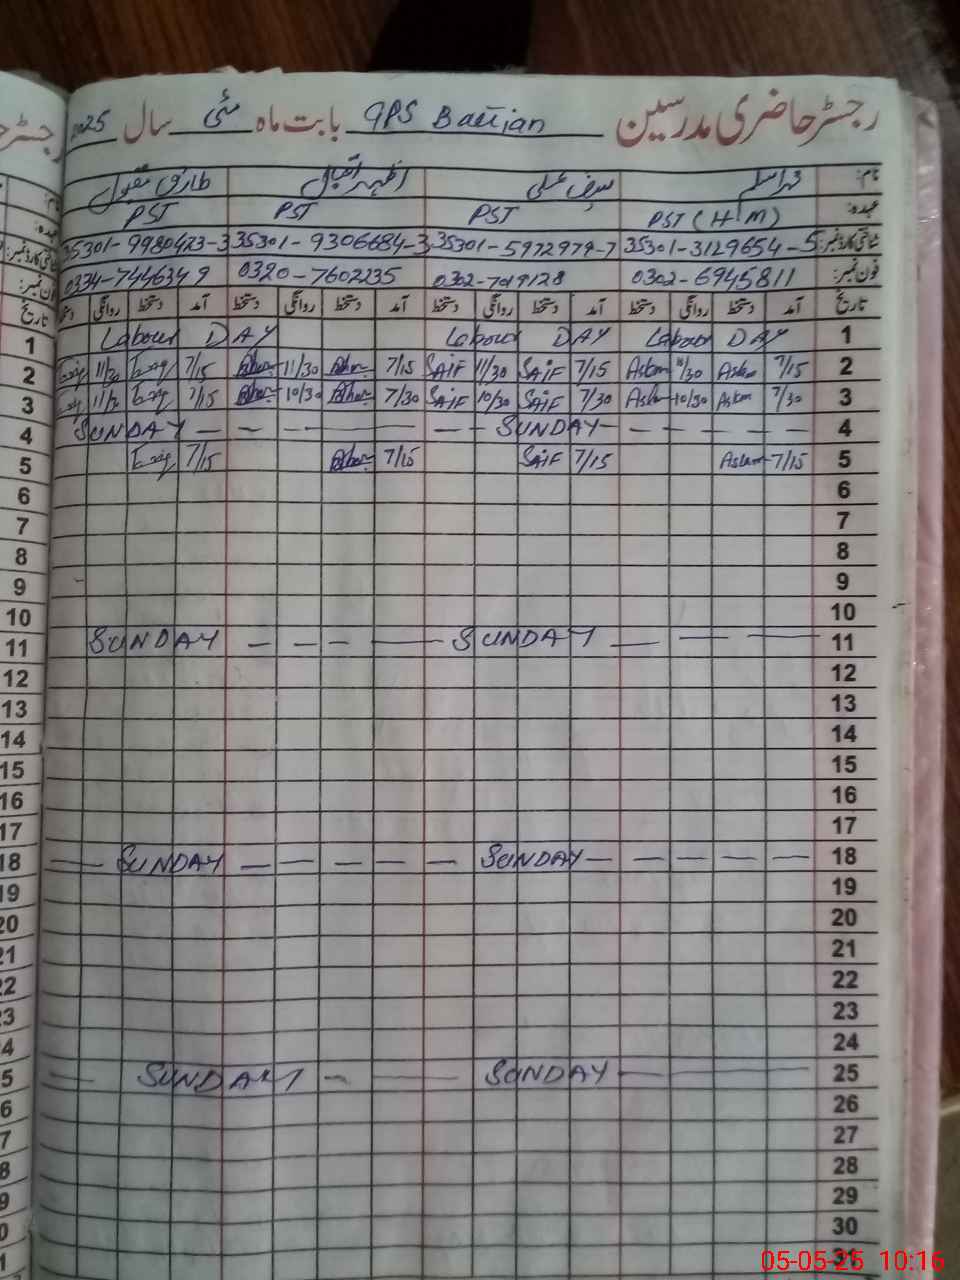 رجسٹر حاضری مدرسین GPS Battian بابت ماہ مئی سال 2025
نام: اسلم سیف علی اظہر اقبال طارق مقبول
عہدہ: PST (H/M) PST PST PST
شناختی کارڈ نمبر: 35301-3129654-5 35301-5972979-7 35301-9306684-3 35301-9980473-3
فون نمبر: 0302-6945811 0302-7019128 0320-7602235 0334-7446349
تاریخ آمد دستخط روانگی دستخط آمد دستخط روانگی دستخط آمد دستخط روانگی دستخط آمد دستخط روانگی
1 Labour DAY Labour DAY Labour DAY
2 7/15 Aslam 11/30 Aslam 7/15 SAIF 11/30 SAIF 7/15 11/30 7/15 11/30
3 7/30 Aslam 10/30 Aslam 7/30 SAIF 10/30 SAIF 7/30 10/30 7/15 11/30
4 SUNDAY SUNDAY
5 7/15 Aslam 7/15 SAIF 7/15 7/15
6
7
8
9
10
11 SUNDAY SUNDAY
12
13
14
15
16
17
18 SUNDAY SUNDAY
19
20
21
22
23
24
25 SUNDAY SUNDAY
26
27
28
29
30
31
05-05-25 10:16